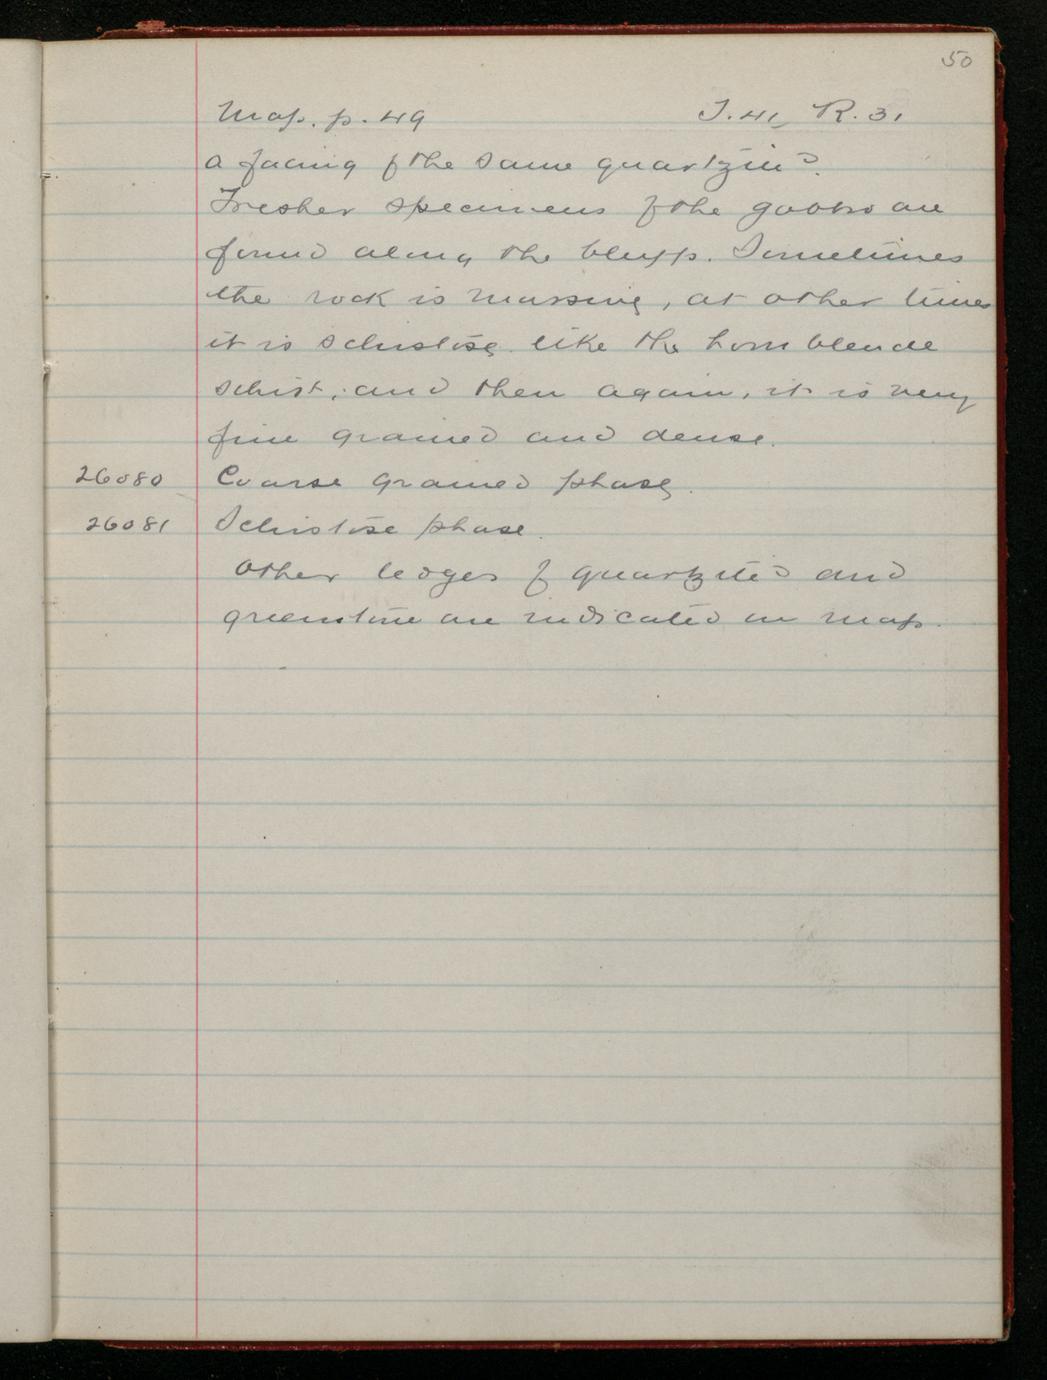 50
Map. p. 49 T. 41, R. 31
a facing of the same quartzite.
Fresher specimens of the gabbro are
found along the bluffs. Sometimes
the rock is massive, at other times
it is schistose like the hornblende
schist, and then again, it is very
fine grained and dense.
26080 Coarse grained phase.
26081 Schistose phase.
Other ledges of quartzite and
greenstone are indicated on map.